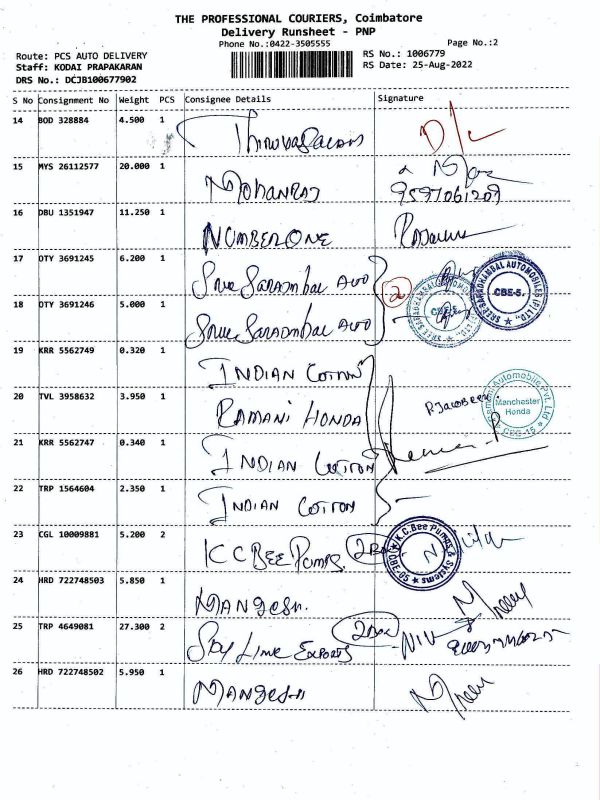 THE PROFESSIONAL COURIERS, Coimbatore
Delivery Runsheet - PNP
Phone No.:0422-3505555
Page No.:2
Route: PCS AUTO DELIVERY
RS No.: 1006779
Staff: KODAI PRAPAKARAN
RS Date: 25-Aug-2022
DRS No.: DCJB100677902
S No Consignment No Weight PCS Consignee Details Signature
14 BOD 328884 4.500 1 D/C
15 MYS 26112577 20.000 1 MOHANRAJ
9597061209
16 DBU 1351947 11.250 1 NUMBER ONE
17 OTY 3691245 6.200 1 Sree Saradmbal Auto 2
SREE SARADHAMBAL AUTOMOBILES (P) LTD., CBE-5.
18 OTY 3691246 5.000 1 Sree Saradmbal Auto
19 KRR 5562749 0.320 1 INDIAN COTTON
20 TVL 3958632 3.950 1 RAMANI HONDA
Manchester
Honda
21 KRR 5562747 0.340 1 INDIAN COTTON
22 TRP 1564604 2.350 1 INDIAN COTTON
23 CGL 10009881 5.200 2 K C BEE PUMPS. 2 Box
K.C. Bee Pumps & Systems
24 HRD 722748503 5.850 1 MANGESH.
25 TRP 4649081 27.300 2 SKY LINE EXPORTS 2 Box
26 HRD 722748502 5.950 1 MANGESH